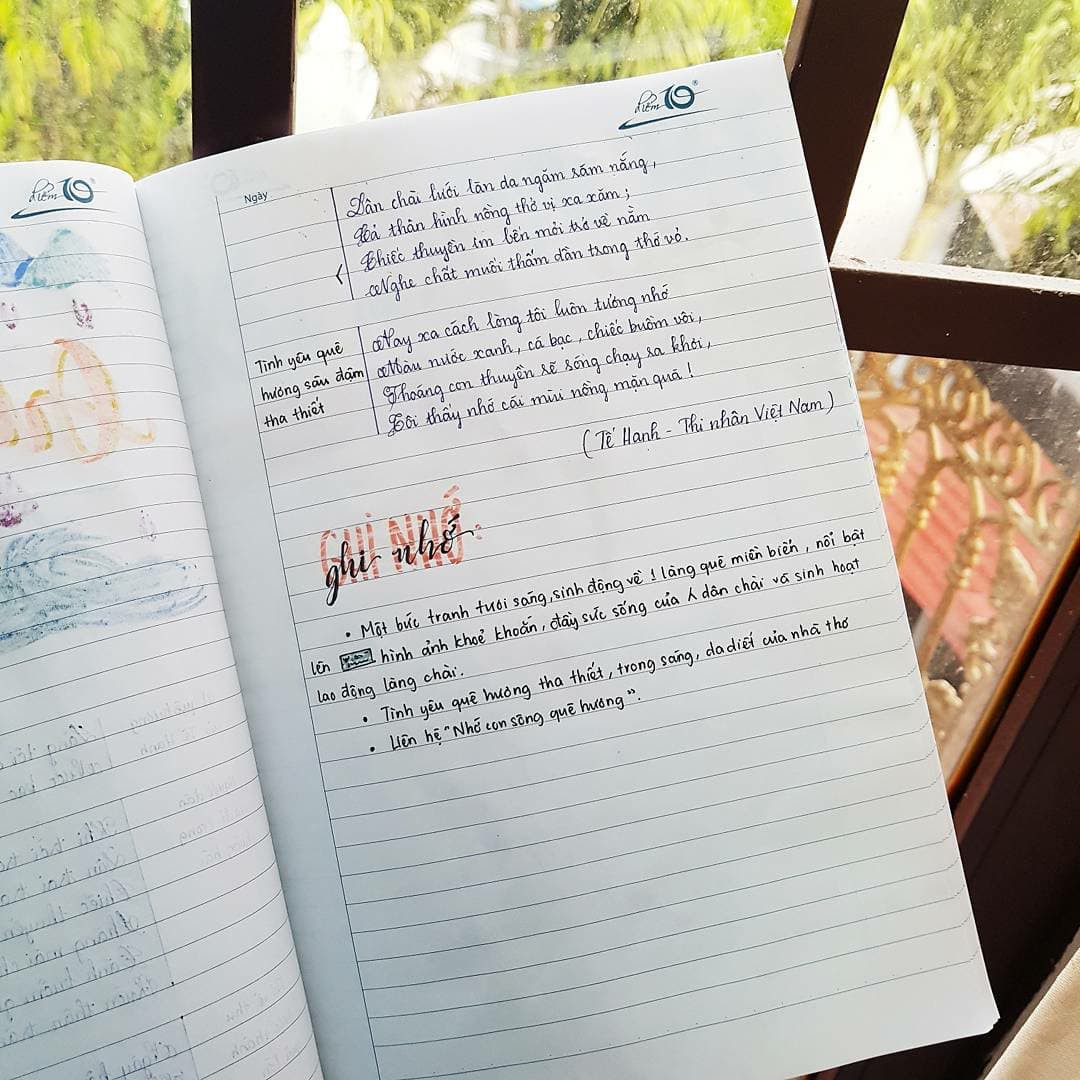 điểm 10
điểm 10
Ngày
Dân chài lưới làn da ngăm rám nắng,
Cả thân hình nồng thở vị xa xăm;
Chiếc thuyền im bến mỏi trở về nằm
Nghe chất muối thấm dần trong thớ vỏ.
Tình yêu quê
hương sâu đậm
tha thiết
Nay xa cách lòng tôi luôn tưởng nhớ
Màu nước xanh, cá bạc, chiếc buồm vôi,
Thoáng con thuyền rẽ sóng chạy ra khơi,
Tôi thấy nhớ cái mùi nồng mặn quá!
(Tế Hanh - Thi nhân Việt Nam)
GHI NHỚ
ghi nhớ
• Một bức tranh tươi sáng, sinh động về 1 làng quê miền biển, nổi bật
lên hình ảnh khoẻ khoắn, đầy sức sống của dân chài và sinh hoạt
lao động làng chài.
• Tình yêu quê hương tha thiết, trong sáng, da diết của nhà thơ
• Liên hệ "Nhớ con sông quê hương".